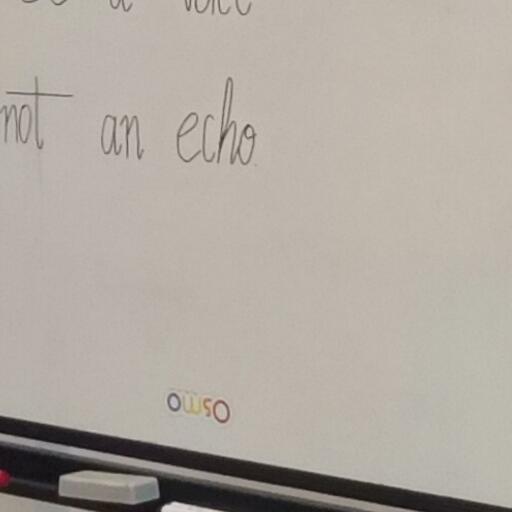 a voice
not an echo.
OSMO